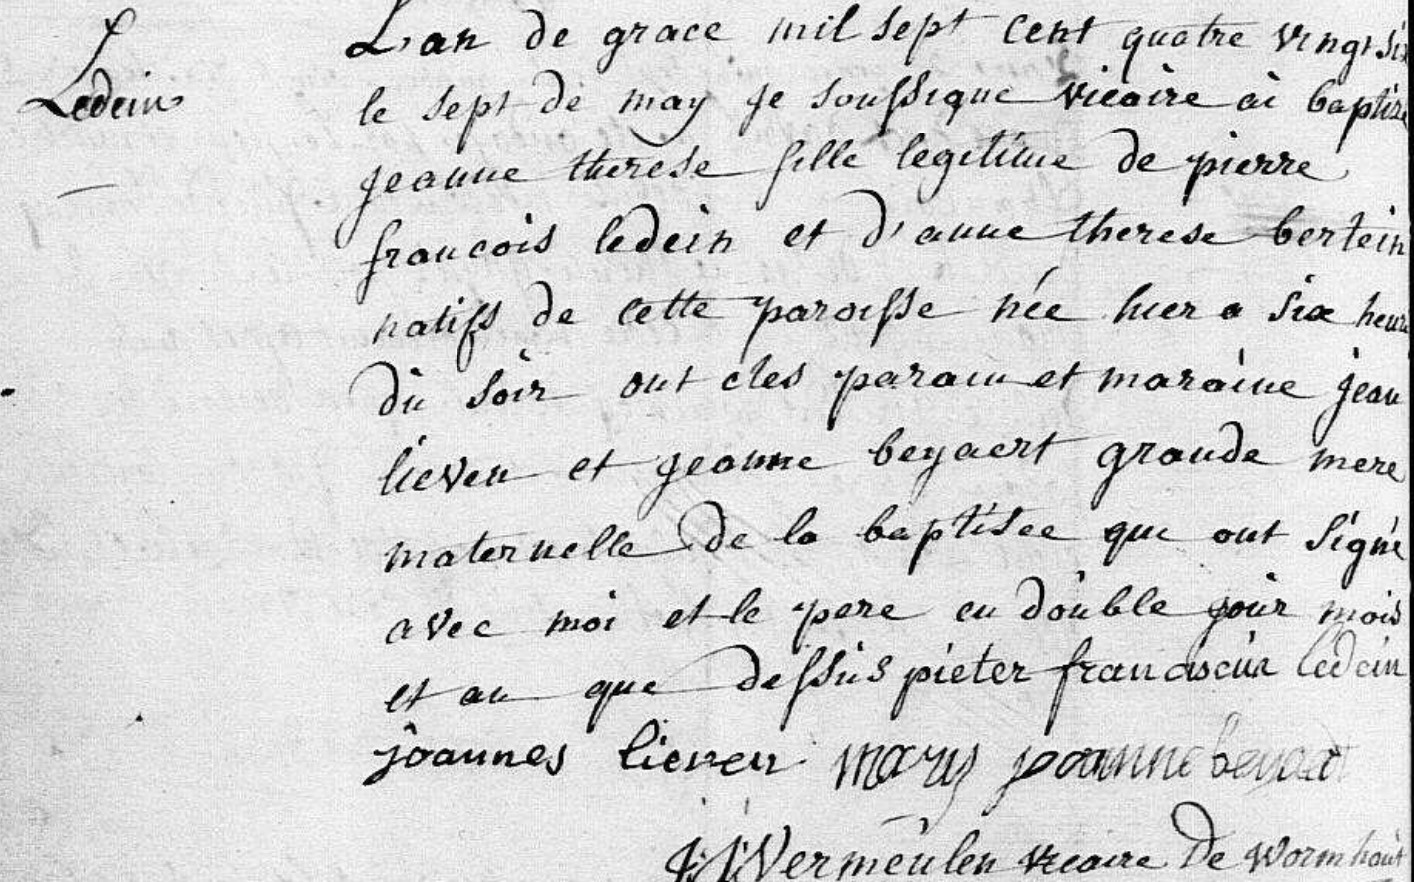 Ledein
L'an de grace mil sept cent quatre vingt six
le sept de may je soussigne vicaire ai baptize
jeanne therese fille legitime de pierre
francois ledein et d'anne therese bertein
natifs de cette paroisse née hier a six heures
du soir ont etes parain et maraine jean
lieven et jeanne beyaert grande mere
maternelle de la baptisee que ont signé
avec moi et le pere en double jour mois
et an que dessus pieter franciscus ledein
joannes lieven mary joanne beyaert
Vermeulen vicaire de wormhout